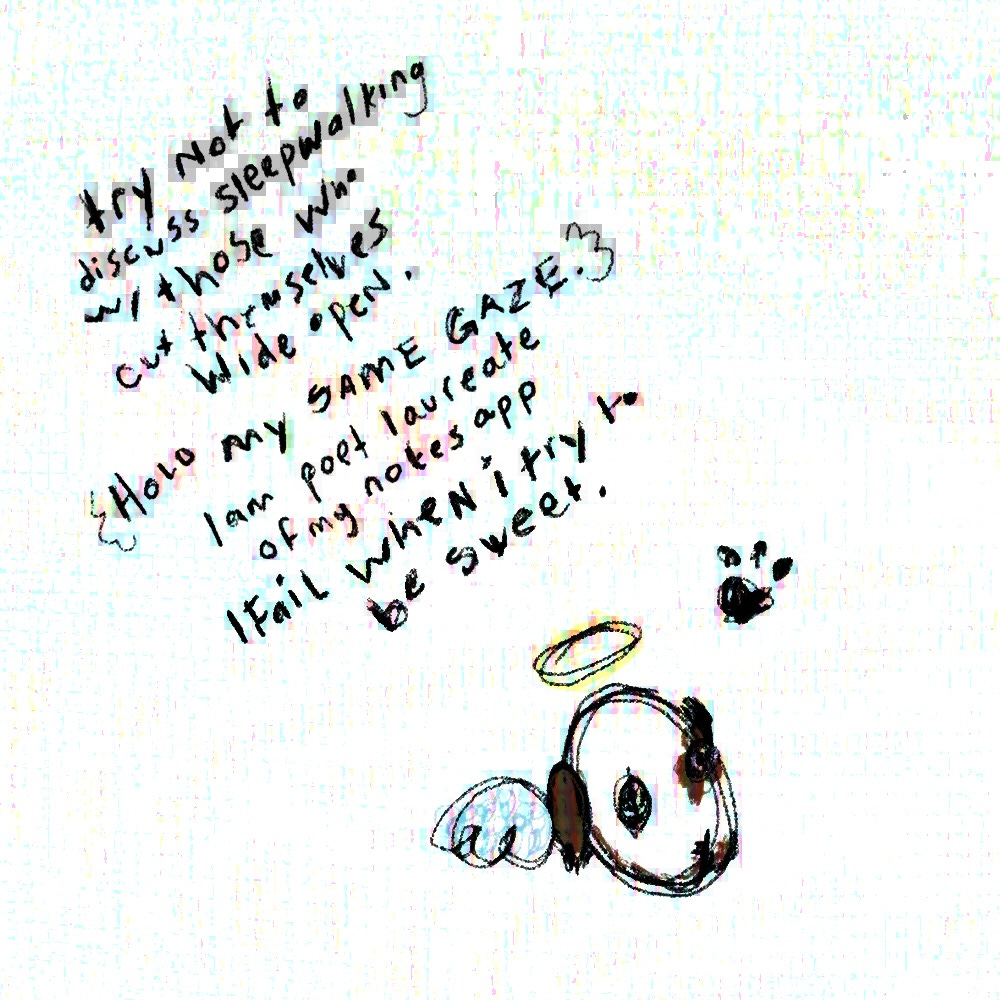 try Not to
discuss sleepwalking
w/ those who
cut themselves
wide open.
{HOLD MY SAME GAZE.}
I am poet laureate
of my notes app
I FaiL wheN i try to
be sweet.